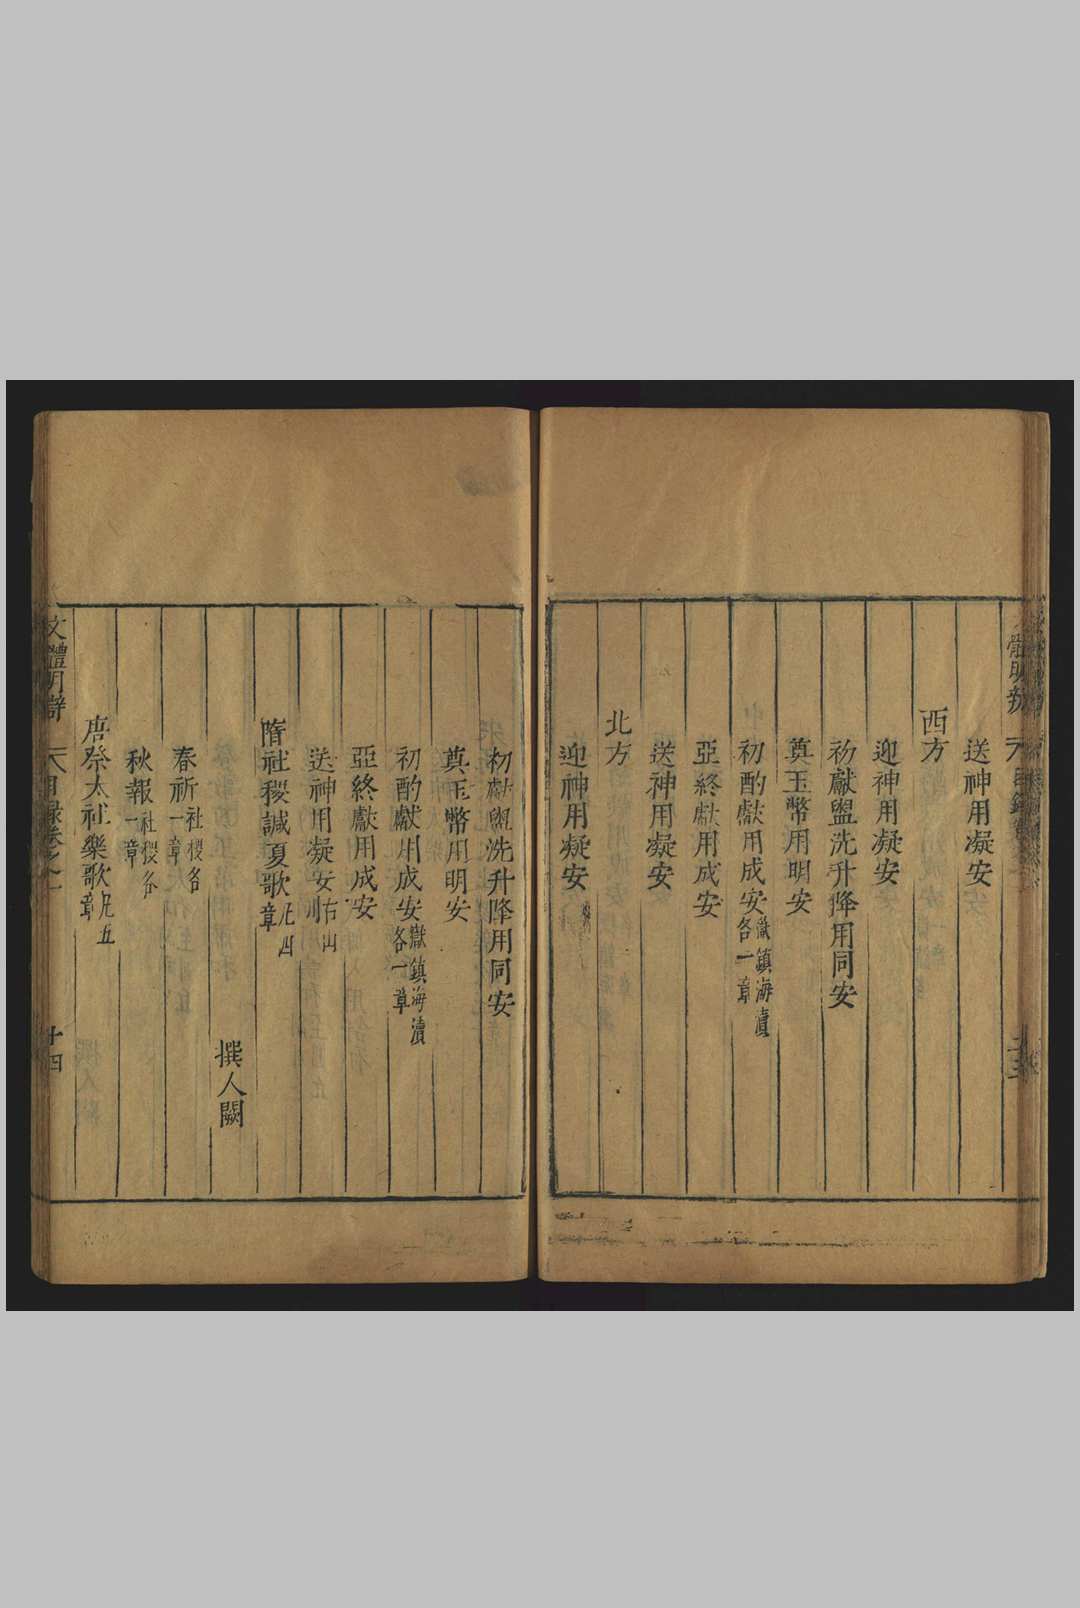 送神用凝安
西方
迎神用凝安
初獻盥洗升降用同安
奠玉幣用明安
初酌獻用成安嶽鎮海瀆各一章
亞終獻用成安
送神用凝安
北方
迎神用凝安
初獻盥洗升降用同安
奠玉幣用明安
初酌獻用成安嶽鎮海瀆各一章
亞終獻用成安
送神用凝安右山
隋社稷諴夏歌凡四章
撰人闕
春祈社稷各一章
秋報社稷各一章
唐祭太社樂歌凡五章
文體明辯 目錄卷之一 十四